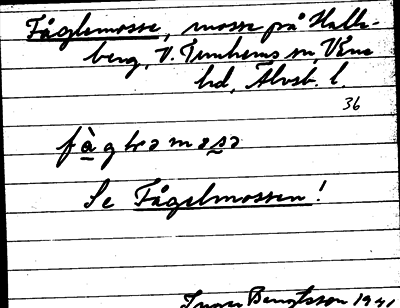 Fåglemosse, mosse på Halle-
berg, V. Tunhems sn, Väne
hd, Älvsb. l.
36
fàgləmosə
Se Fågelmossen!
Bengtsson 1941